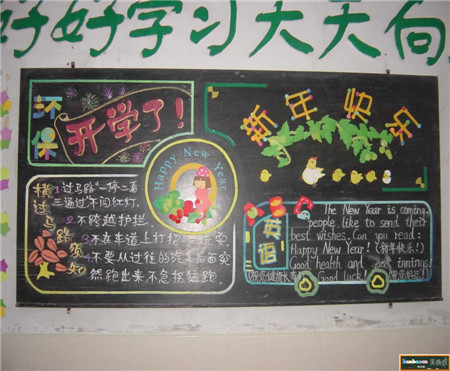 好好学习天天向
环保
开学了!
新年快乐
Happy New Year
横过马路须知
1.过马路"一停二看
三通过"不闯红灯.
2.不跨越护栏.
3.不在车道上打招
4.不要从过往的汽车后面突
然跑出来,不急拐猛跑.
英语
The New Year is coming,
people like to send their
best wishes. Can you read:
Happy New Year! (新年快乐!)
Good health and
good luck!